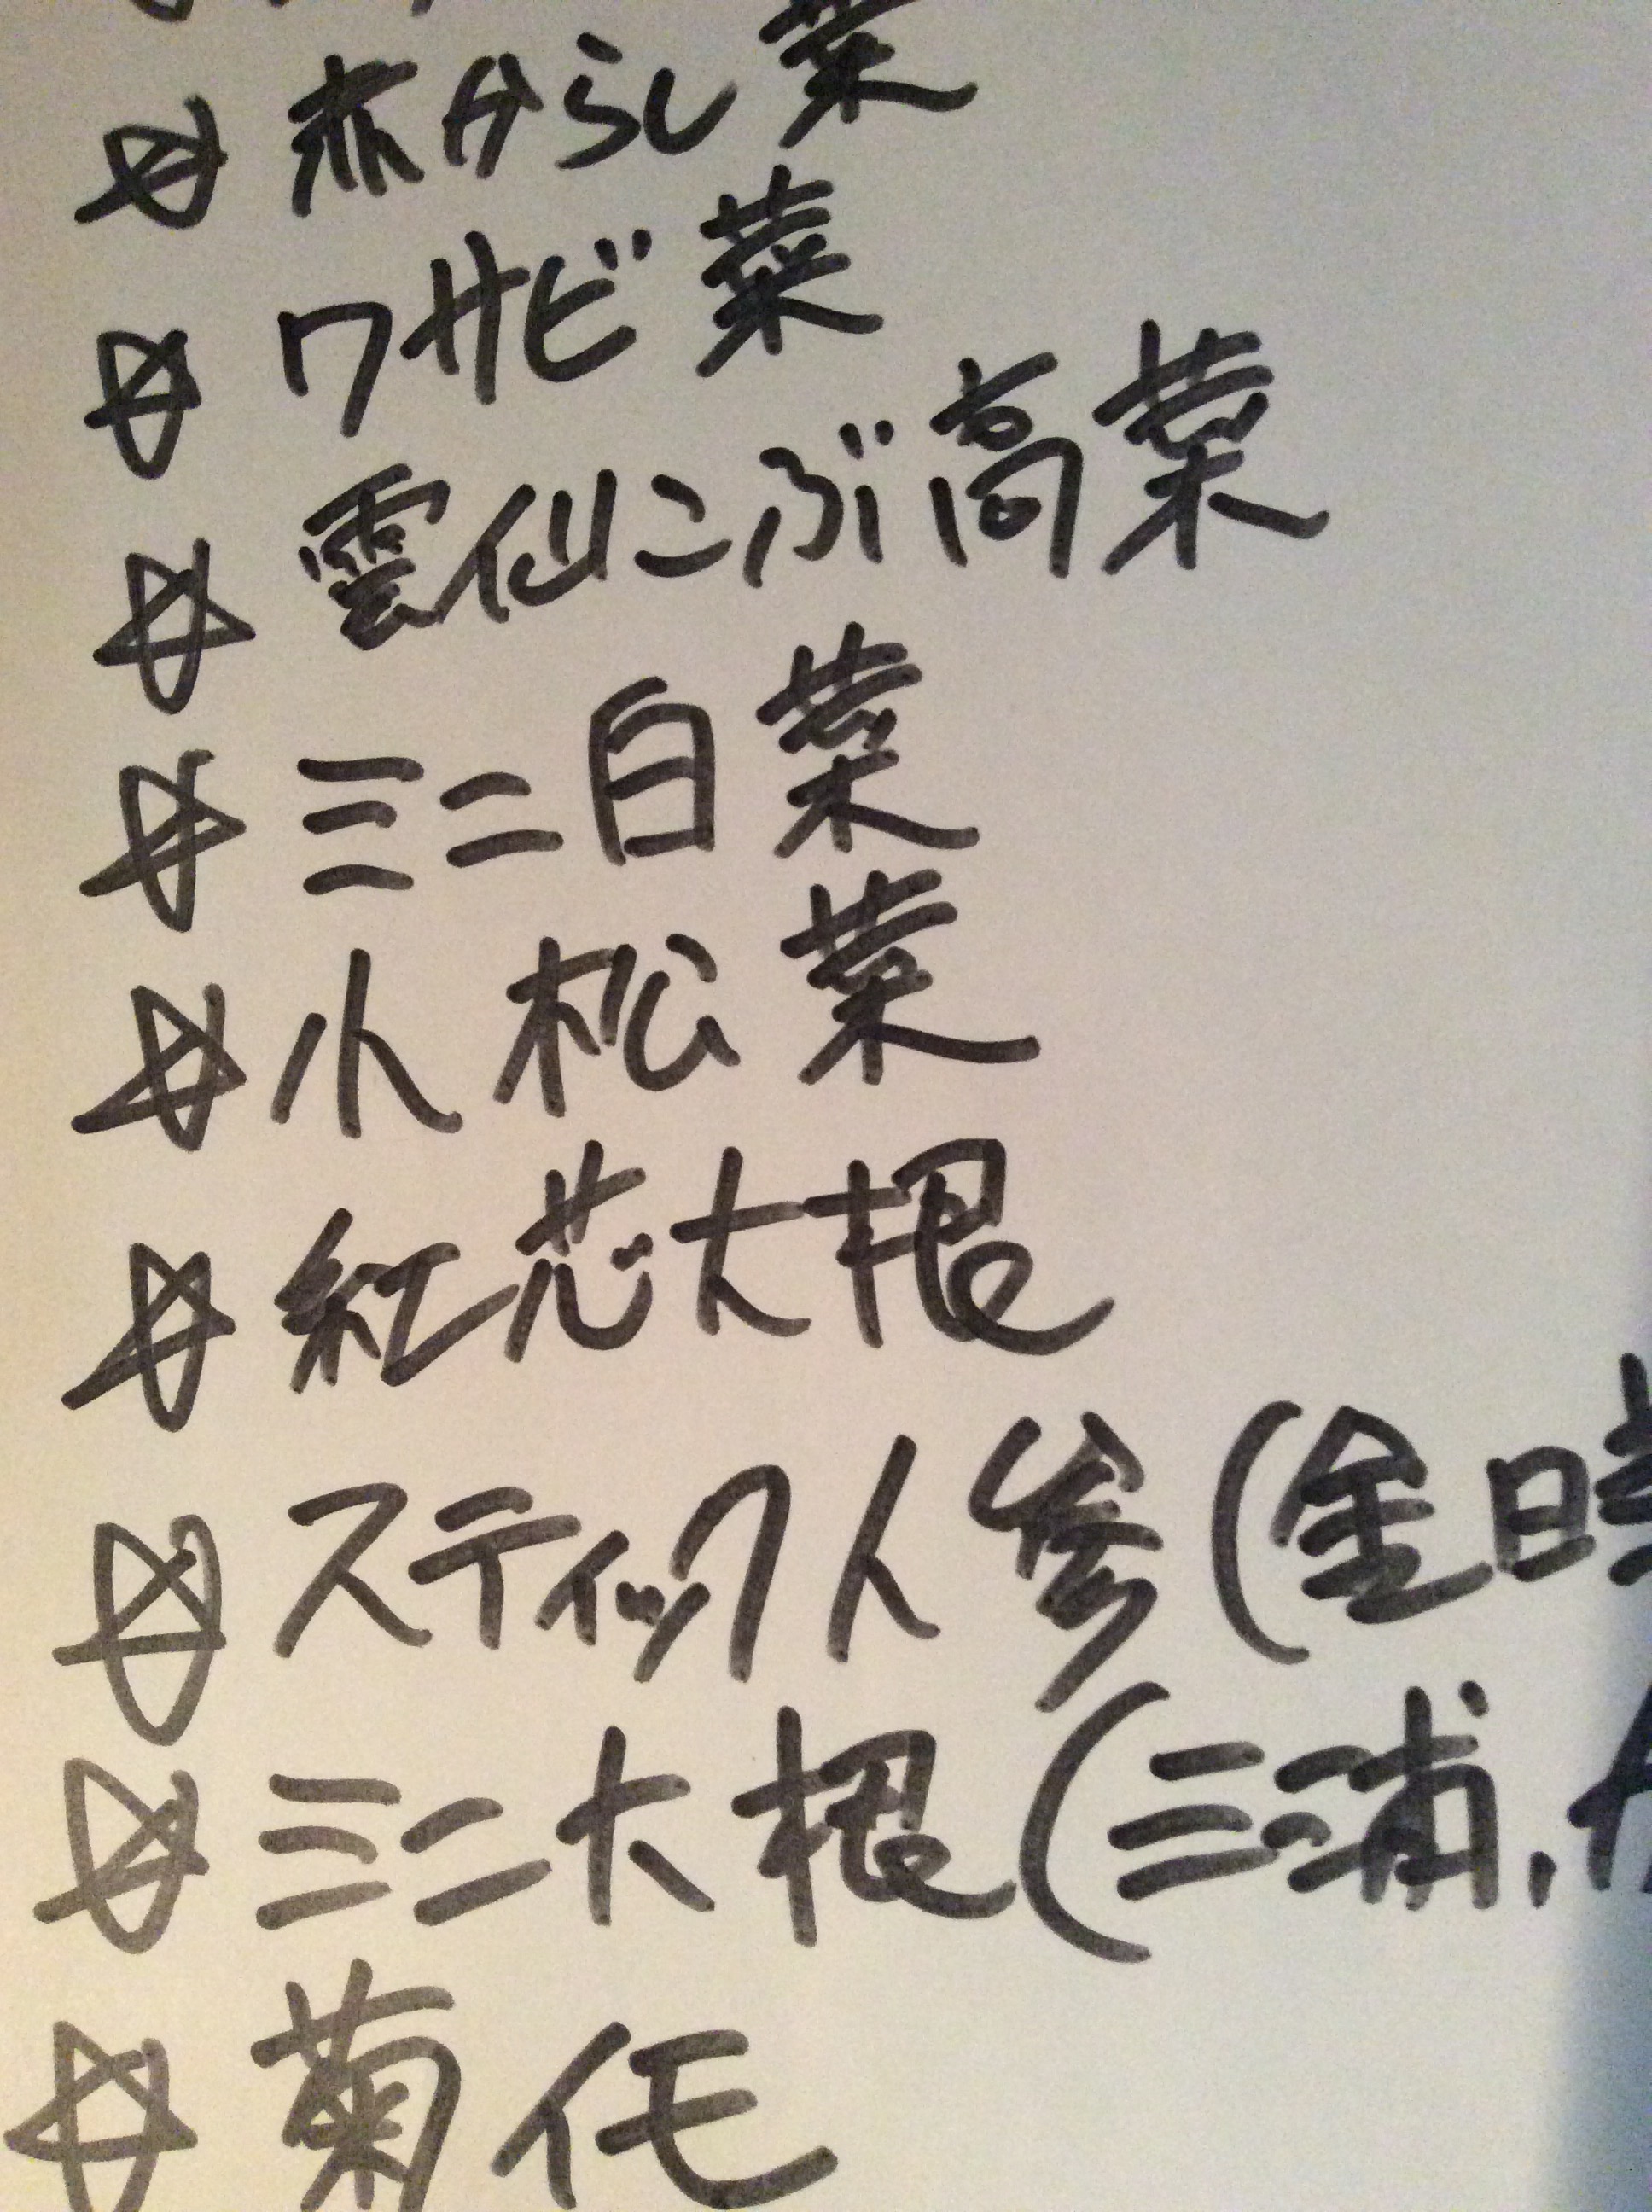 ☆ 赤からし菜
☆ ワサビ菜
☆ 雲仙こぶ高菜
☆ ミニ白菜
☆ 小松菜
☆ 紅芯大根
☆ スティック人参(金時
☆ ミニ大根(三浦、
☆ 菊イモ